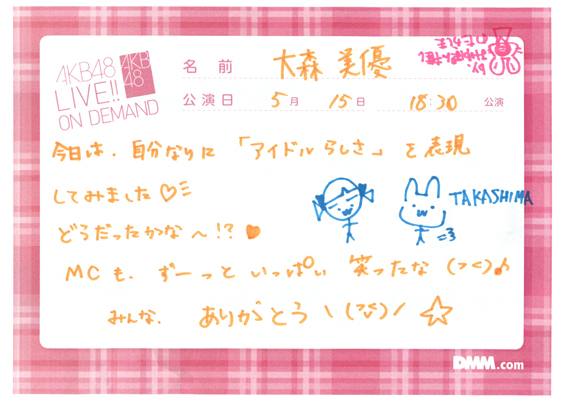 AKB48
LIVE!!
ON DEMAND
AKB
48
名前 大森美優
公演日 5月 15日 18:30 公演
今日は、自分なりに「アイドルらしさ」を表現
してみました♡
どうだったかな〜!?♥
TAKASHIMA
=3
MCも、ずーっといっぱい笑ったな(>᎑<)♪
みんな、ありがとう\(>᎑<)/☆
DMM.com